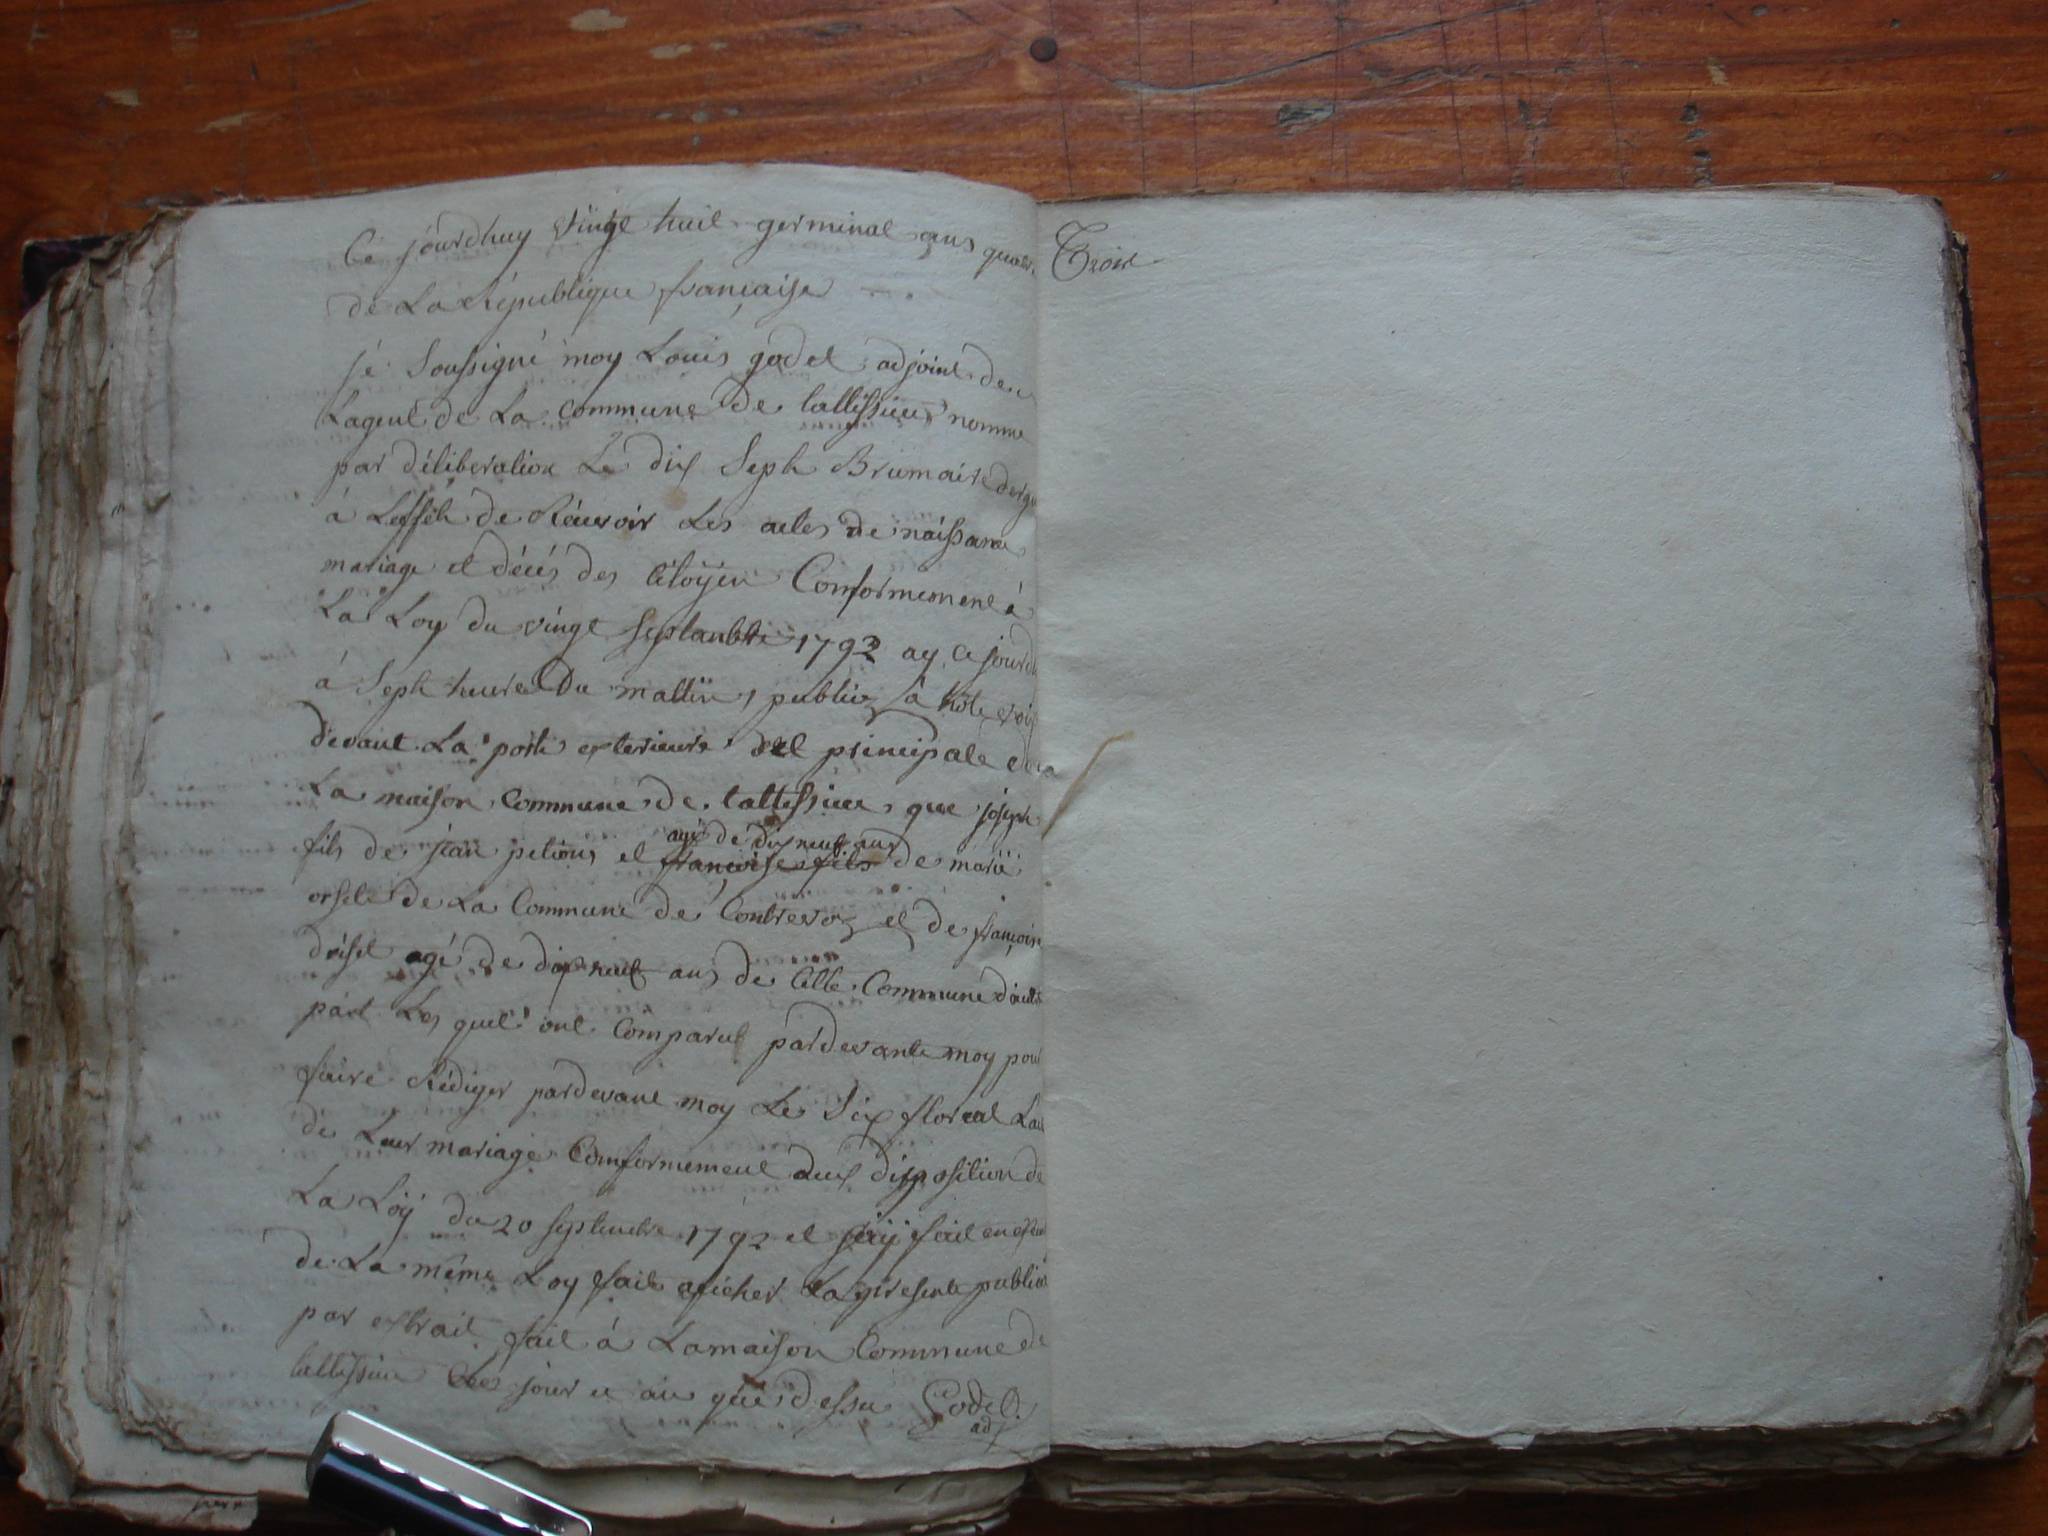 Ce jourdhuy vingt huit germinal ans quatr
de La République française
jé Soussigné moy Louis godet adjoint de
Lagent de La Commune de tallissieu nommé
par déliberation Le dix Seph Brumaire
à Leffèh de Récuvoir Les actes de naissance
mariage et décés des Citoÿen Conformement à
La Loy du vingt Septambre 1792 ay ce jourd
à Seph heure Du mattin, publiez à hôte voix
devant La porte exterieure et principale
La maison Commune de tallessieu, que joseph
fils de jean petions et agé de dix neuf ans de marië
orsel de La Commune de Contrevoz et de françoise
drisel agé de dix neuf ans de Cette Commune d'autre
part Les quel ont Comparut pardevante moy pour
faire Rédiger pardevant moy Le Six floreal La
de Leur mariage Comformement aux disposition de
La Loÿ du 20 septembre 1792 et jaÿ fait en
de La même Loy fait aficher La presente publica
par extrait fait à Lamaison Commune de
tallissieu Les jour et an que dessu Godet
adj
Troise